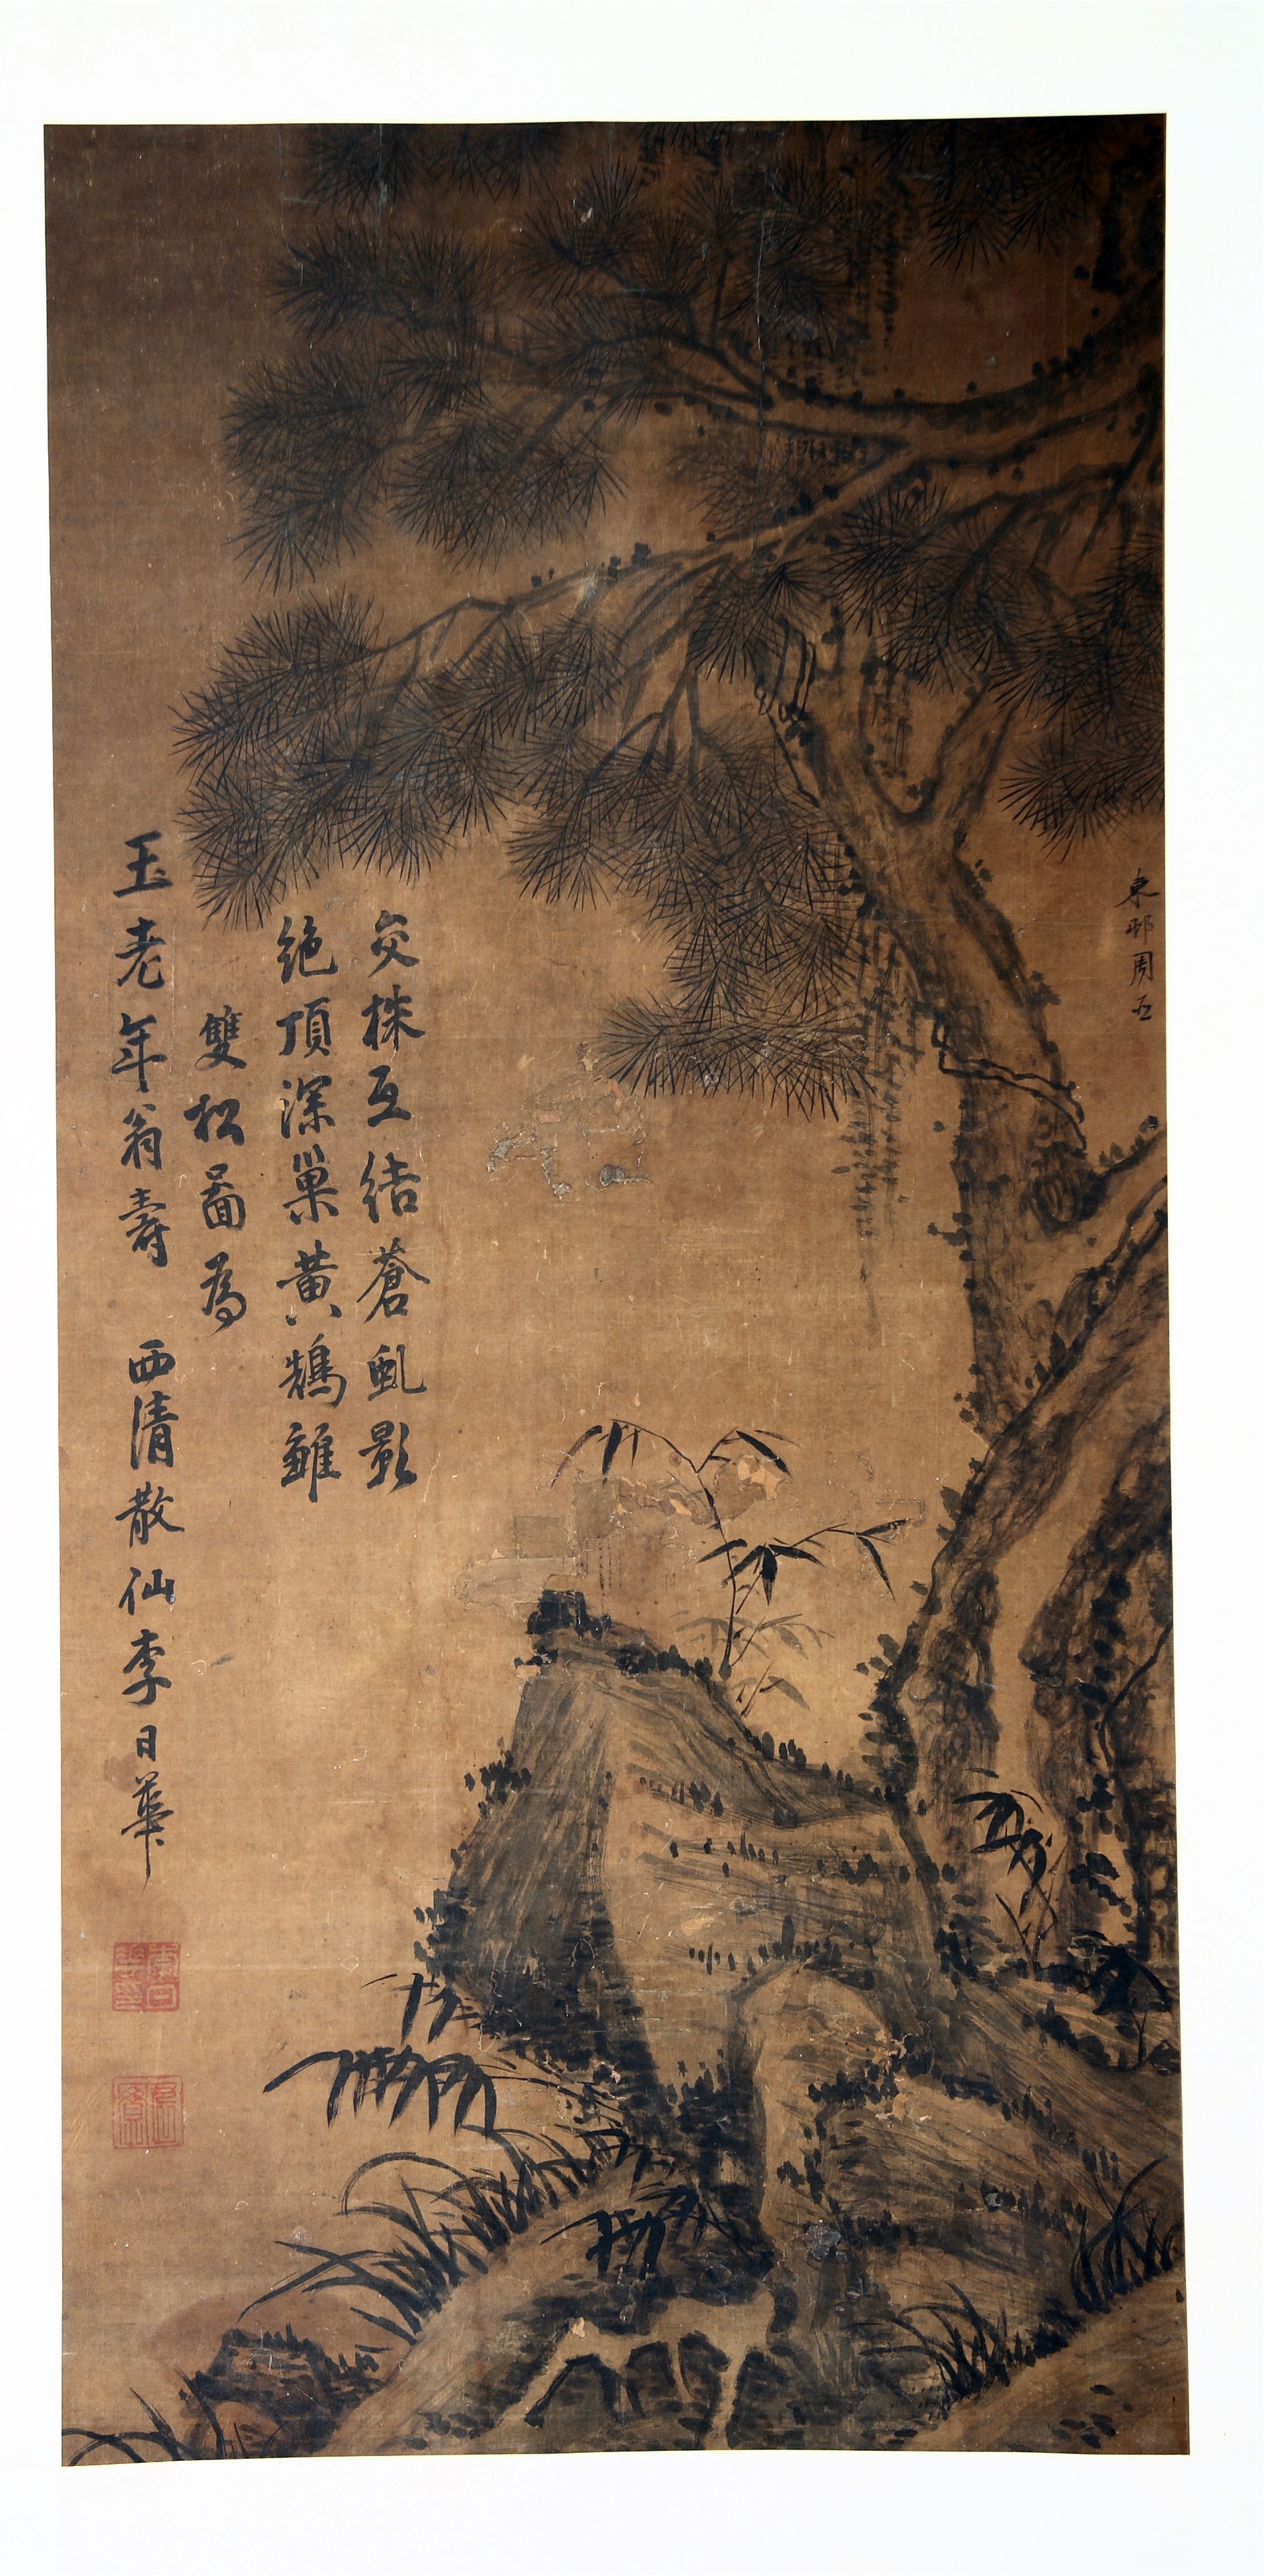 東邨周臣
交株互結蒼虬影
絕頂深巢黃鵠雛
雙松圖為
玉老年翁壽 西清散仙李日華